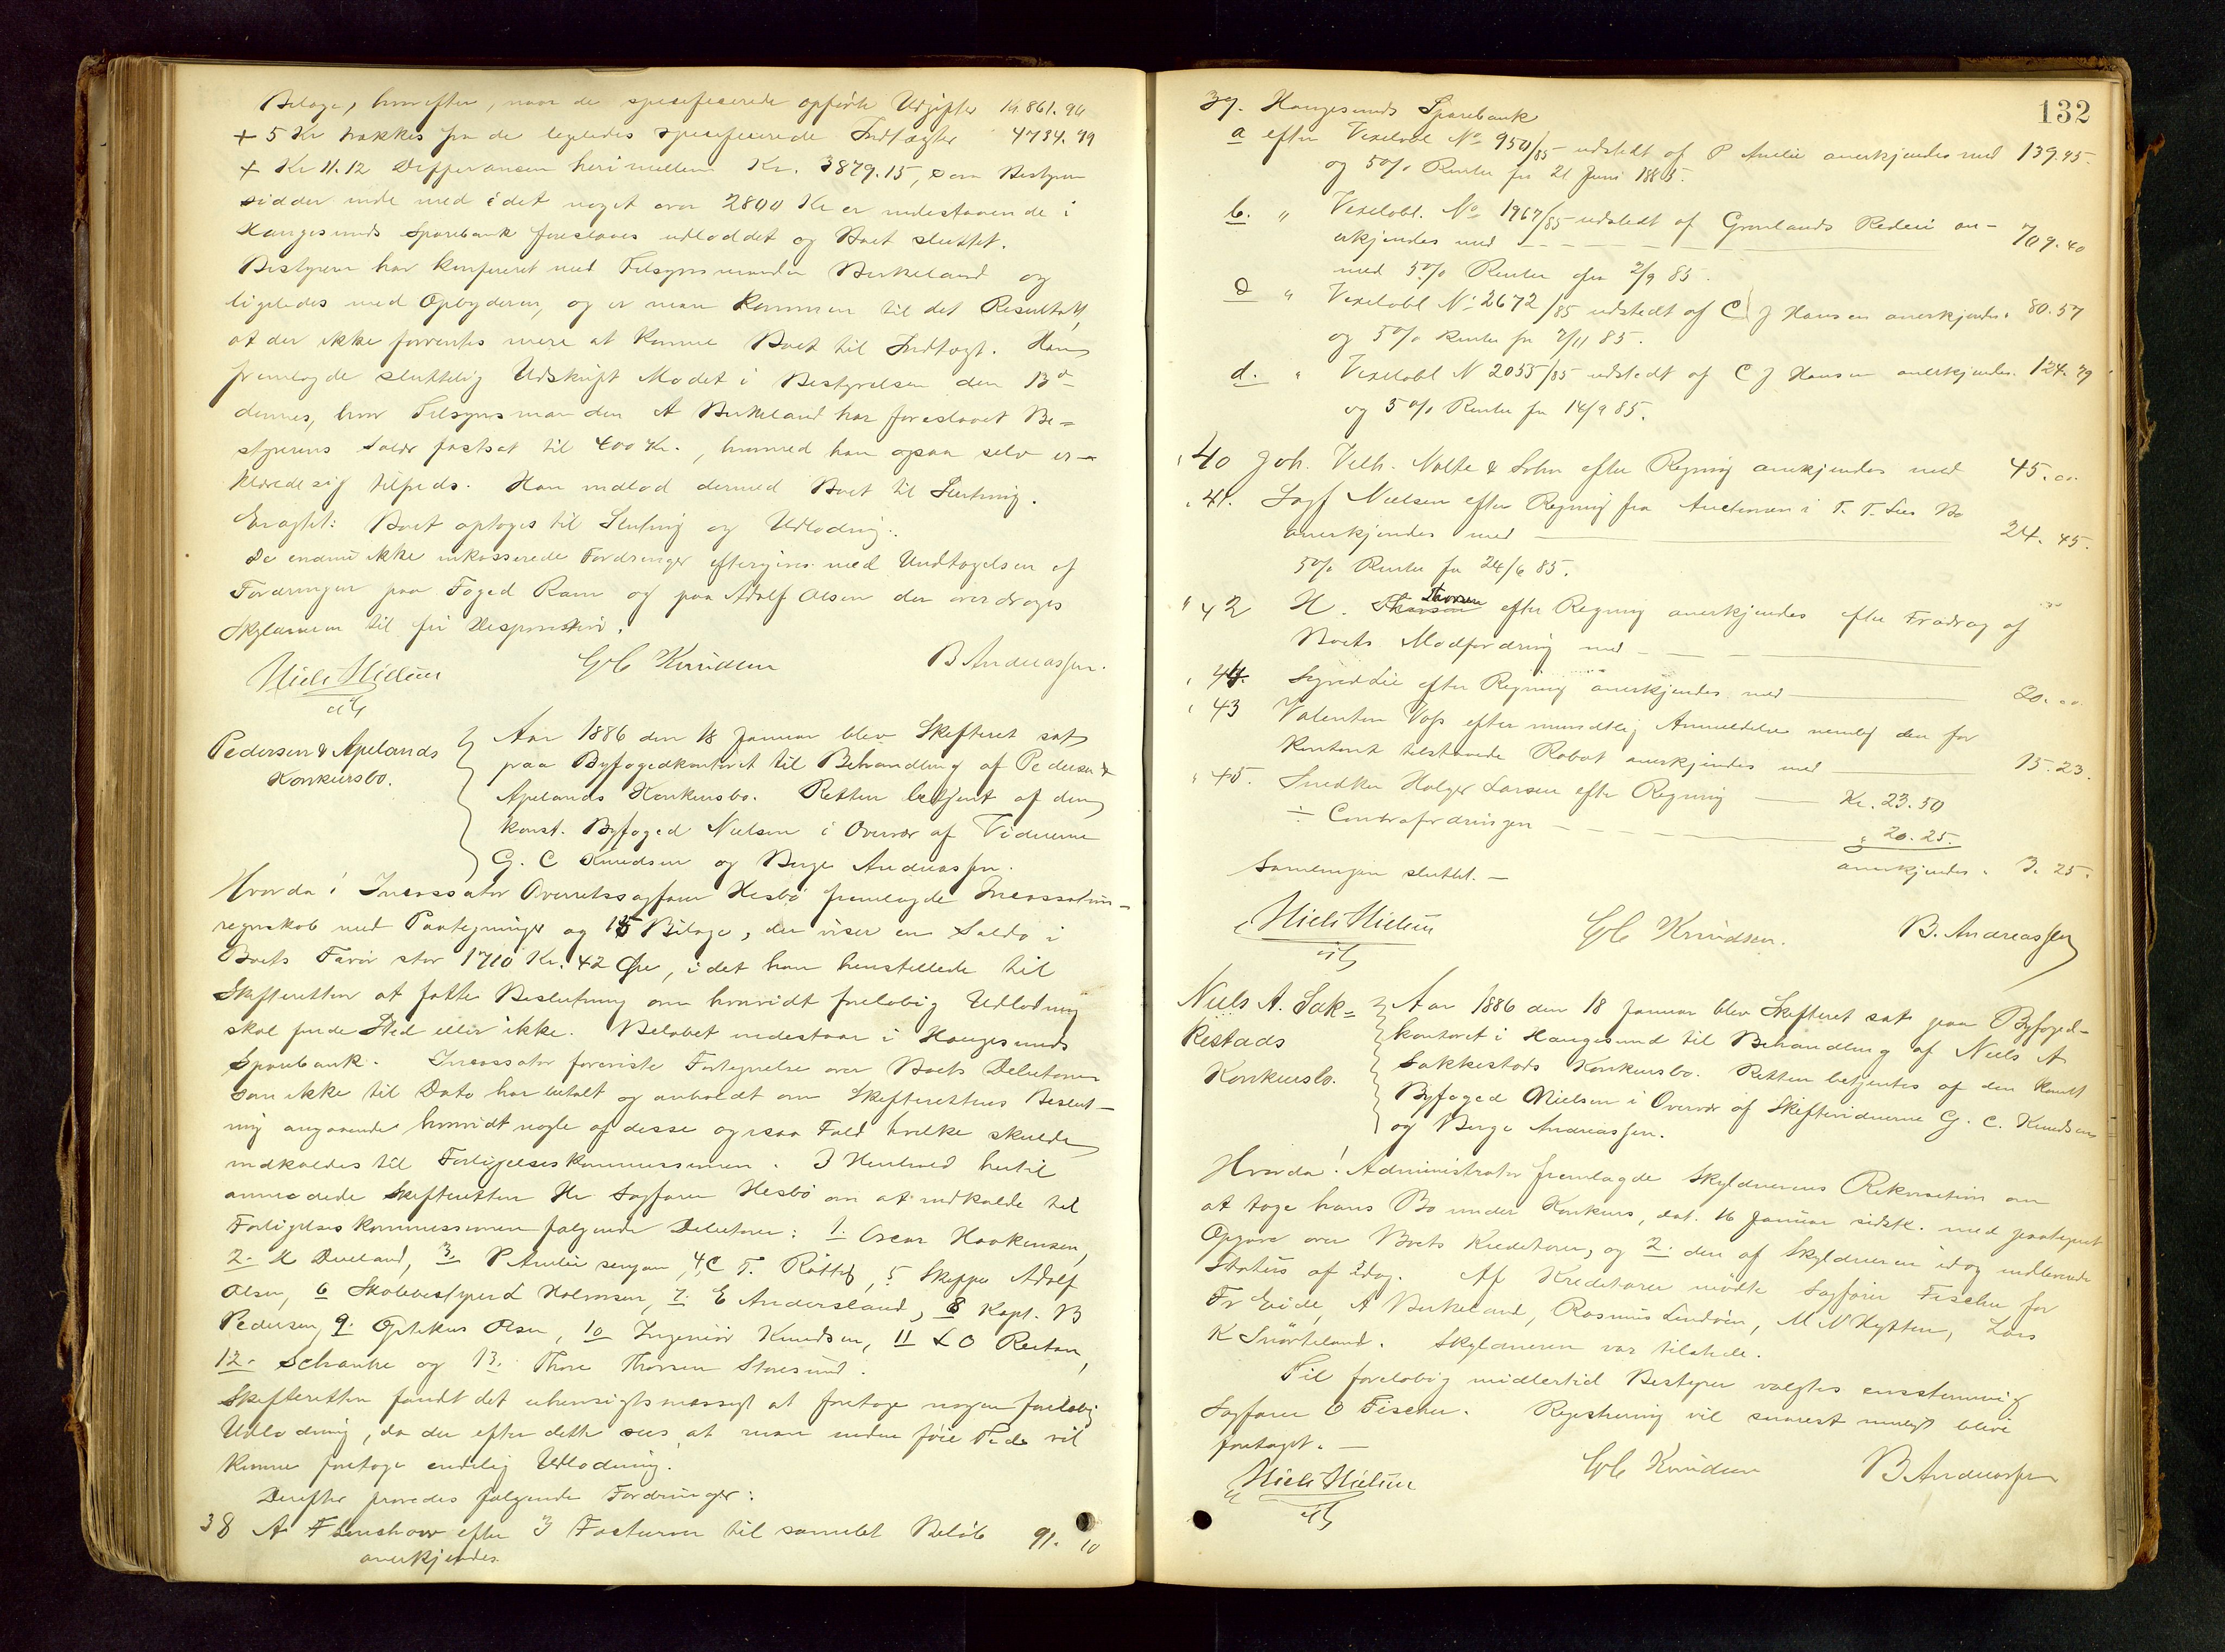 Bilage, hvorefter, naar de specificerede opførte Udgifter 14861.94
+ 5 Kr trækkes fra de ligeledes specificerede Indtægter 4734.99
+ Kr 11.12 Differancen herimellem Kr. 3879.15, som Bestyren
sidder inde med idet noget over 2800 Kr er indestaaende i
Haugesunds Sparebank foreslaaes udloddet og Boet sluttet.
Bestyren har konfereret med Tilsynsmanden Birkeland og
ligeledes med Opbyderen, og er man kommen til det Resultat,
at der ikke forventes mere at komme Boet til Indtægt. Han
fremlagde sluttelig Udskrift Mødet i Bestyrelsen den 13de
dennes, hvor Tilsynsmanden A Birkeland har foreslaaet Be=
styrerens Salær fastsat til 400 Kr., hvormed han ogsaa selv er-
klærede sig tilfreds. Han indlod dermed Boet til Slutning.
Eragtet: Boet optages til Slutning og Udlodning.
De endnu ikke inkasserede Fordringer eftergives med Undtagelsen af
Fordringen paa Foged Ram og paa Adolf Olsen der overdrages
Skyldneren til fri Disposition.
Niels Nielsen
cst
G C Knudsen
B Andreassen.
Pedersen & Apelands
Konkursbo.
Aar 1886 den 18 Januar blev Skifteret sat
paa Byfogedkontoret til Behandling af Pedersen &
Apelands Konkursbo. Retten betjent af den
konst. Byfoged Nielsen i Overvær af Vidnerne
G. C Knudsen og Berge Andreassen.
Hvorda! Incassator Overretssagfører Hesbø fremlagde Incassations-
regnskab med Paategninger og 15 Bilage, der viser en Saldo i
Boets Favør stor 1710 Kr. 42 Øre, idet han henstillede til
Skifteretten at fatte Beslutning om hvorvidt foreløbig Udlodning
skal finde Sted eller ikke. Beløbet indestaar i Haugesunds
Sparebank. Incassator foreviste Fortegnelse over Boets Debitorer
som ikke til Dato har betalt og anholdt om Skifterettens Beslut-
ning angaaende hvorvidt nogle af disse og isaa Fald hvilke skulde
indkaldes til Forligelseskommissionen. I Henhold hertil
anmodede Skifteretten Hr Sagfører Hesbø om at indkalde til
Forligelseskommissionen følgende Debitorer: 1. Oscar Haakensen,
2. M Dueland, 3. P Amlie senior, 4. C T. Røttel, 5. Skipper Adolf
Olsen, 6 Skolebestyrer L Halvorsen, 7. E Andersland, 8 Kapt. B
Pedersen, 9. Optikus Olsen, 10 Ingeniør Knudsen, 11 L O Restan,
12. Schanke og 13. Thore Thorsen Storesund.
Skifteretten fandt det uhensigtsmæssigt at foretage nogen foreløbig
Udlodning, da der efter dette sees at man inden føie Tid vil
kunne foretage endelig Udlodning.
Derefter prøvedes følgende Fordringer:
38 A Flinshow efter 3 Facturaer til samlet Beløb 91.10
anerkjendes
132
39. Haugesunds Sparebank
a efter Vexelobl No 950/85 udstedt af P Amlie anerkjendes med 139.95.
og 5% Renter fra 21 Juni 1885.
b. " Vexelobl. No 1967/85 udstedt af Grønlands Rederi an-
erkjendes med - - - 709.40
med 5% Renter fra 2/9 85.
c " Vexelobl No 2672/85 udstedt af C J Hansen anerkjendes. 80.57
og 5% Renter fra 7/11 85.
d. " Vexelobl N 2055/85 udstedt af C J Hansen anerkjendes. 124.79
og 5% Renter fra 14/9 85.
" 40 Joh. Vilh. Nolte & Sohn efter Regning anerkjendes med 45.00.
" 41. Sagf Nielsen efter Regning fra Auctionen i T. T. Lies Bo
anerkjendes med — 24.45.
5% Renter fra 24/6 85.
" 42 H. Thorsen efter Regning anerkjendes efter Fradrag af
Boets Modfordring med -
" 44. Sigvid Lie efter Regning anerkjendes med — 20.00.
" 43 Valentin Voss efter mundtlig Anmeldelse nemlig den for
Kontant tilstaaede Rabat anerkjendes med — 15.23.
" 45. Snedker Holger Larsen efter Regning — Kr. 23.50
÷ Contrafordringen - - - " 20.25.
anerkjendes. 3.25.
Samlingen sluttet. —
Niels Nielsen
cst
G C Knudsen.
B. Andreassen
Niels A. Sak=
kestads
Konkursbo.
Aar 1886 den 18 Januar blev Skifteret sat paa Byfoged-
kontoret i Haugesund til Behandling af Niels A
Sakkestads Konkursbo. Retten betjentes af den konst
Byfoged Nielsen i Overvær af Skiftevidnerne G. C. Knudsen
og Berge Andreassen.
Hvorda! Administrator fremlagde Skyldnerens Rekvisition om
at tage hans Bo under Konkurs, dat. 16 Januar sidstl. med paategnet
Opgave over Boets Kreditorer, og 2. den af Skyldneren idag indleverede
Status af idag. Af Kreditorer mødte Sagfører Fischer for
Fr Eide, A Birkeland, Rasmus Lindøen, M N Hytten, Lars
K Snørteland. Skyldneren var tilstede.
Til foreløbig midlertid Bestyrer valgtes enstemmig
Sagfører O Fischer. Registrering vil snarest muligt blive
foretaget. —
Niels Nielsen
cst
G C Knudsen
B Andreassen